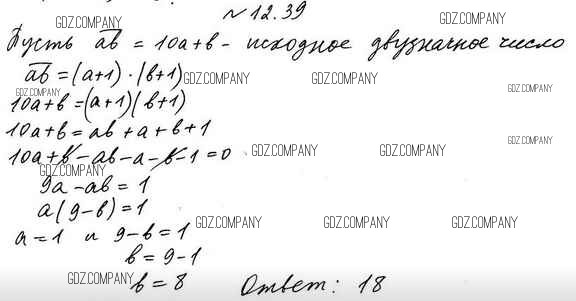 №12.39
GDZ.COMPANY GDZ.COMPANY
Пусть ab = 10a+b - исходное двузначное число
GDZ.COMPANY
ab = (a+1)·(b+1)
GDZ.COMPANY GDZ.COMPANY
GDZ.COMPANY GDZ.COMPANY
10a+b=(a+1)(b+1)
10a+b=ab+a+b+1
GDZ.COMPANY
10a+b-ab-a-b-1=0
GDZ.COMPANY GDZ.COMPANY
GDZ.COMPANY
9a-ab=1
a(9-b)=1
GDZ.COMPANY GDZ.COMPANY GDZ.COMPANY
a=1 и 9-b=1
b=9-1
GDZ.COMPANY
b=8 Ответ: 18